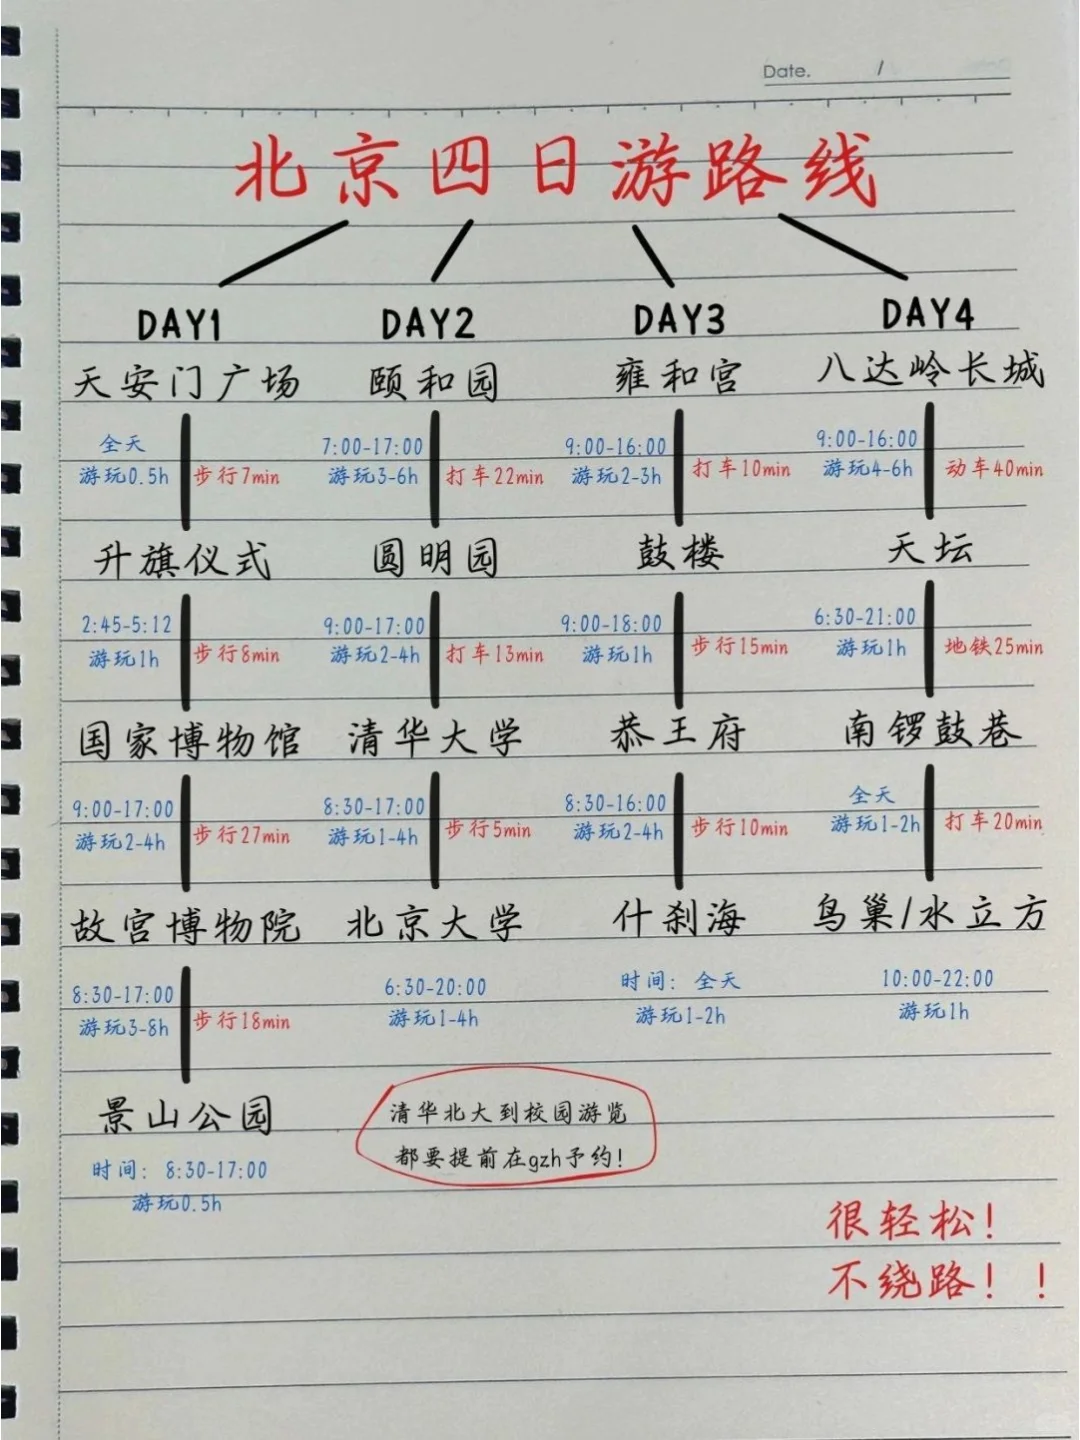 Date. /
北京四日游路线
DAY1 DAY2 DAY3 DAY4
天安门广场 颐和园 雍和宫 八达岭长城
全天 7:00-17:00 9:00-16:00 9:00-16:00
游玩0.5h 步行7min 游玩3-6h 打车22min 游玩2-3h 打车10min 游玩4-6h 动车40min
升旗仪式 圆明园 鼓楼 天坛
2:45-5:12 9:00-17:00 9:00-18:00 6:30-21:00
游玩1h 步行8min 游玩2-4h 打车13min 游玩1h 步行15min 游玩1h 地铁25min
国家博物馆 清华大学 恭王府 南锣鼓巷
9:00-17:00 8:30-17:00 8:30-16:00 全天
游玩2-4h 步行27min 游玩1-4h 步行5min 游玩2-4h 步行10min 游玩1-2h 打车20min
故宫博物院 北京大学 什刹海 鸟巢/水立方
8:30-17:00 6:30-20:00 时间: 全天 10:00-22:00
游玩3-8h 步行18min 游玩1-4h 游玩1-2h 游玩1h
景山公园
时间: 8:30-17:00
游玩0.5h
清华北大到校园游览
都要提前在gzh予约!
很轻松!
不绕路! !